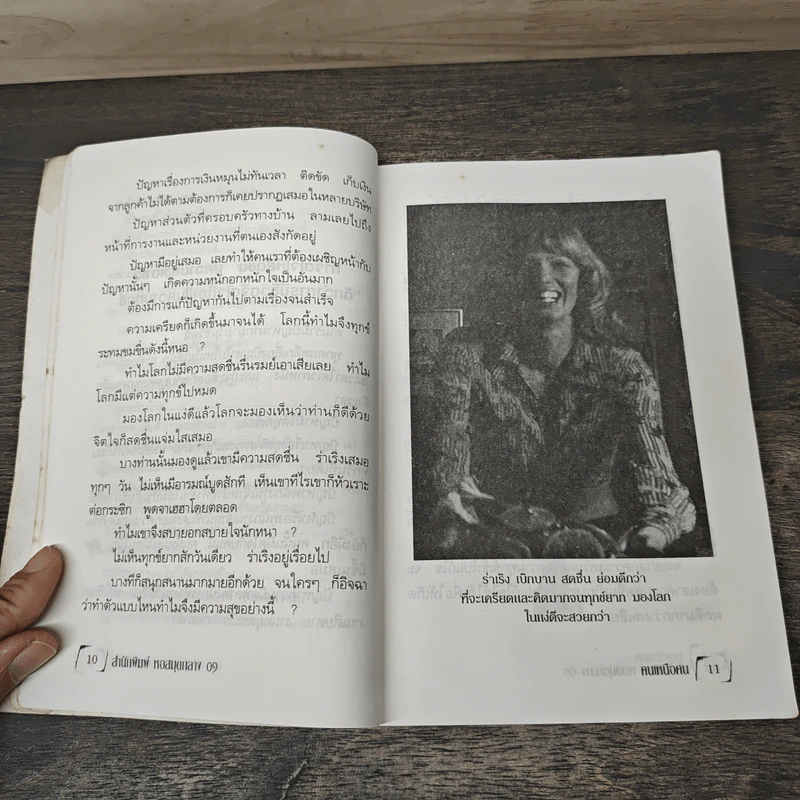 ปัญหาเรื่องการเงินหมุนไม่ทันเวลา ติดขัด เก็บเงิน
จากลูกค้าไม่ได้ตามต้องการก็เคยปรากฏเสมอในหลายบริษัท
ปัญหาส่วนตัวที่ครอบครัวทางบ้าน ลามเลยไปถึง
หน้าที่การงานและหน่วยงานที่ตนเองสังกัดอยู่
ปัญหามีอยู่เสมอ เลยทำให้คนเราที่ต้องเผชิญหน้ากับ
ปัญหานั้นๆ เกิดความหนักอกหนักใจเป็นอันมาก
ต้องมีการแก้ปัญหากันไปตามเรื่องจนสำเร็จ
ความเครียดก็เกิดขึ้นมาจนได้ โลกนี้ทำไมจึงทุกข์
ระทมขมขื่นดังนี้หนอ ?
ทำไมโลกไม่มีความสดชื่นรื่นรมย์เอาเสียเลย ทำไม
โลกมีแต่ความทุกข์ไปหมด
มองโลกในแง่ดีแล้วโลกจะมองเห็นว่าท่านก็ดีด้วย
จิตใจก็สดชื่นแจ่มใสเสมอ
บางท่านนั้นมองดูแล้วเขามีความสดชื่น ร่าเริงเสมอ
ทุกๆ วัน ไม่เห็นมีอารมณ์บูดสักที เห็นเขาทีไรเขาก็หัวเราะ
ต่อกระซิก พูดจาเฮฮาโดยตลอด
ทำไมเขาจึงสบายอกสบายใจนักหนา ?
ไม่เห็นทุกข์ยากสักวันเดียว ร่าเริงอยู่เรื่อยไป
บางทีก็สนุกสนานมากมายอีกด้วย จนใครๆ ก็อิจฉา
ว่าทำตัวแบบไหนทำไมจึงมีความสุขอย่างนี้ ?
10 สำนักพิมพ์ หอสมุดกลาง 09
ร่าเริง เบิกบาน สดชื่น ย่อมดีกว่า
ที่จะเครียดและคิดมากจนทุกข์ยาก มองโลก
ในแง่ดีจะสวยกว่า
คนเหนือคน 11